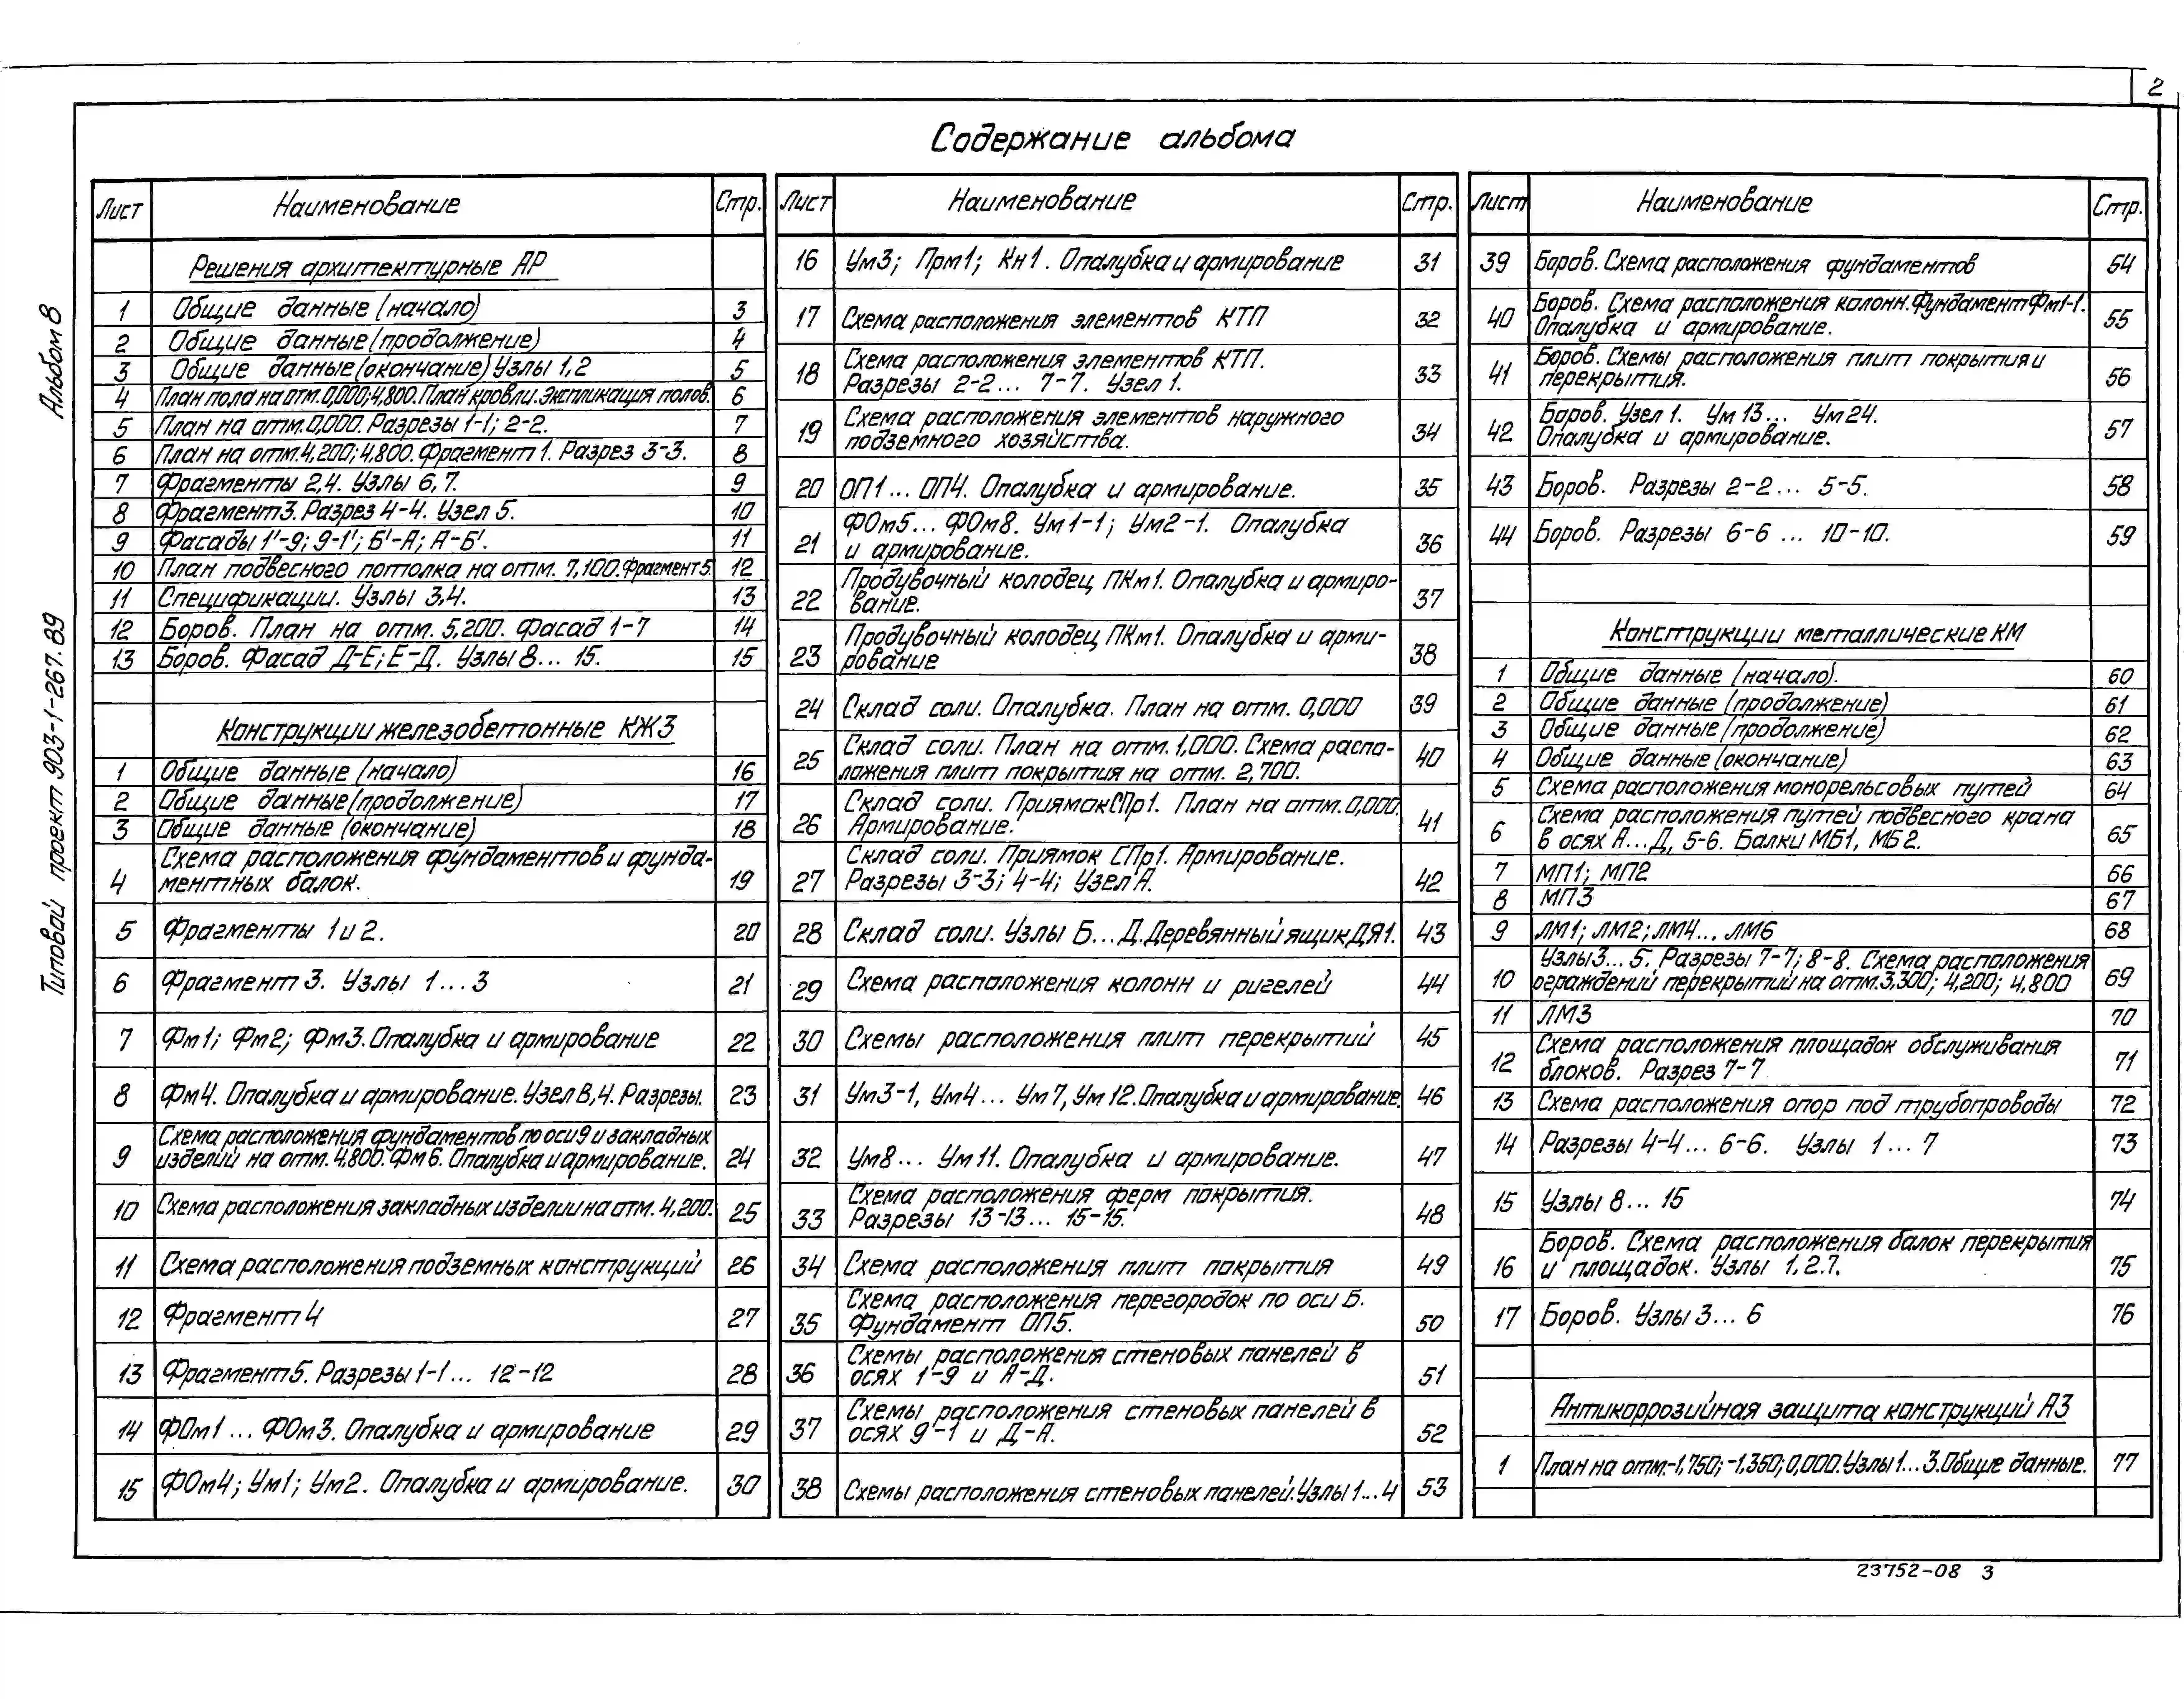 2
Содержание альбома
Альбом 8
Типовой проект 903-1-267.89
Лист Наименование Стр.
Решения архитектурные АР
1 Общие данные (начало) 3
2 Общие данные (продолжение) 4
3 Общие данные (окончание) Узлы 1,2 5
4 План пола на отм. 0,000; 4,800. План кровли. Экспликация полов. 6
5 План на отм. 0,000. Разрезы 1-1; 2-2. 7
6 План на отм. 4,200; 4,800. Фрагмент 1. Разрез 3-3. 8
7 Фрагменты 2,4. Узлы 6,7. 9
8 Фрагмент 3. Разрез 4-4. Узел 5. 10
9 Фасады 1'-9; 9-1'; Б'-А; А-Б'. 11
10 План подвесного потолка на отм. 7,100. Фрагмент 5. 12
11 Спецификации. Узлы 3,4. 13
12 Боров. План на отм. 5,200. Фасад 1-7 14
13 Боров. Фасад Д-Е; Е-Д. Узлы 8... 15. 15
Конструкции железобетонные КЖ3
1 Общие данные (начало) 16
2 Общие данные (продолжение) 17
3 Общие данные (окончание) 18
4 Схема расположения фундаментов и фунда-
ментных балок. 19
5 Фрагменты 1 и 2. 20
6 Фрагмент 3. Узлы 1...3 21
7 Фм1; Фм2; Фм3. Опалубка и армирование 22
8 Фм4. Опалубка и армирование. Узел В,4. Разрезы. 23
9 Схема расположения фундаментов по оси 9 и закладных
изделий на отм. 4,800. Фм 6. Опалубка и армирование. 24
10 Схема расположения закладных изделий на отм. 4,200. 25
11 Схема расположения подземных конструкций 26
12 Фрагмент 4 27
13 Фрагмент 5. Разрезы 1-1... 12-12 28
14 ФОм1 ... ФОм3. Опалубка и армирование 29
15 ФОм4; Ум1; Ум2. Опалубка и армирование. 30
Лист Наименование Стр.
16 Ум3; Прм1; Кн1. Опалубка и армирование 31
17 Схема расположения элементов КТП 32
18 Схема расположения элементов КТП.
Разрезы 2-2... 7-7. Узел 1. 33
19 Схема расположения элементов наружного
подземного хозяйства. 34
20 ОП1... ОП4. Опалубка и армирование. 35
21 ФОм5... ФОм8. Ум1-1; Ум2-1. Опалубка
и армирование. 36
22 Продувочный колодец ПКм1. Опалубка и армиро-
вание. 37
23 Продувочный колодец ПКм1. Опалубка и арми-
рование 38
24 Склад соли. Опалубка. План на отм. 0,000 39
25 Склад соли. План на отм. 1,000. Схема распо-
ложения плит покрытия на отм. 2,700. 40
26 Склад соли. Приямок СПр1. План на отм. 0,000.
Армирование. 41
27 Склад соли. Приямок СПр1. Армирование.
Разрезы 3-3; 4-4; Узел А. 42
28 Склад соли. Узлы Б...Д. Деревянный ящик ДЯ1. 43
29 Схема расположения колонн и ригелей 44
30 Схемы расположения плит перекрытий 45
31 Ум3-1, Ум4... Ум7, Ум12. Опалубка и армирование. 46
32 Ум8... Ум11. Опалубка и армирование. 47
33 Схема расположения ферм покрытия.
Разрезы 13-13... 15-15. 48
34 Схема расположения плит покрытия 49
35 Схема расположения перегородок по оси Б.
Фундамент ОП5. 50
36 Схемы расположения стеновых панелей в
осях 1-9 и А-Д. 51
37 Схемы расположения стеновых панелей в
осях 9-1 и Д-А. 52
38 Схемы расположения стеновых панелей. Узлы 1...4 53
Лист Наименование Стр.
39 Боров. Схема расположения фундаментов 54
40 Боров. Схема расположения колонн. Фундамент Фм1-1.
Опалубка и армирование. 55
41 Боров. Схемы расположения плит покрытия и
перекрытия. 56
42 Боров. Узел 1. Ум 13... Ум 24.
Опалубка и армирование. 57
43 Боров. Разрезы 2-2... 5-5. 58
44 Боров. Разрезы 6-6 ... 10-10. 59
Конструкции металлические КМ
1 Общие данные (начало). 60
2 Общие данные (продолжение) 61
3 Общие данные (продолжение) 62
4 Общие данные (окончание) 63
5 Схема расположения монорельсовых путей 64
6 Схема расположения путей подвесного крана
в осях А...Д, 5-6. Балки МБ1, МБ2. 65
7 МП1; МП2 66
8 МП3 67
9 ЛМ1; ЛМ2; ЛМ4... ЛМ6 68
10 Узлы 3... 5. Разрезы 7-7; 8-8. Схема расположения
ограждений перекрытий на отм. 3,300; 4,200; 4,800 69
11 ЛМ3 70
12 Схема расположения площадок обслуживания
блоков. Разрез 7-7 71
13 Схема расположения опор под трубопроводы 72
14 Разрезы 4-4... 6-6. Узлы 1... 7 73
15 Узлы 8... 15 74
16 Боров. Схема расположения балок перекрытия
и площадок. Узлы 1.2.7. 75
17 Боров. Узлы 3... 6 76
Антикоррозийная защита конструкций АЗ
1 План на отм. -1,750; -1,350; 0,000. Узлы 1...3. Общие данные. 77
23752-08 3